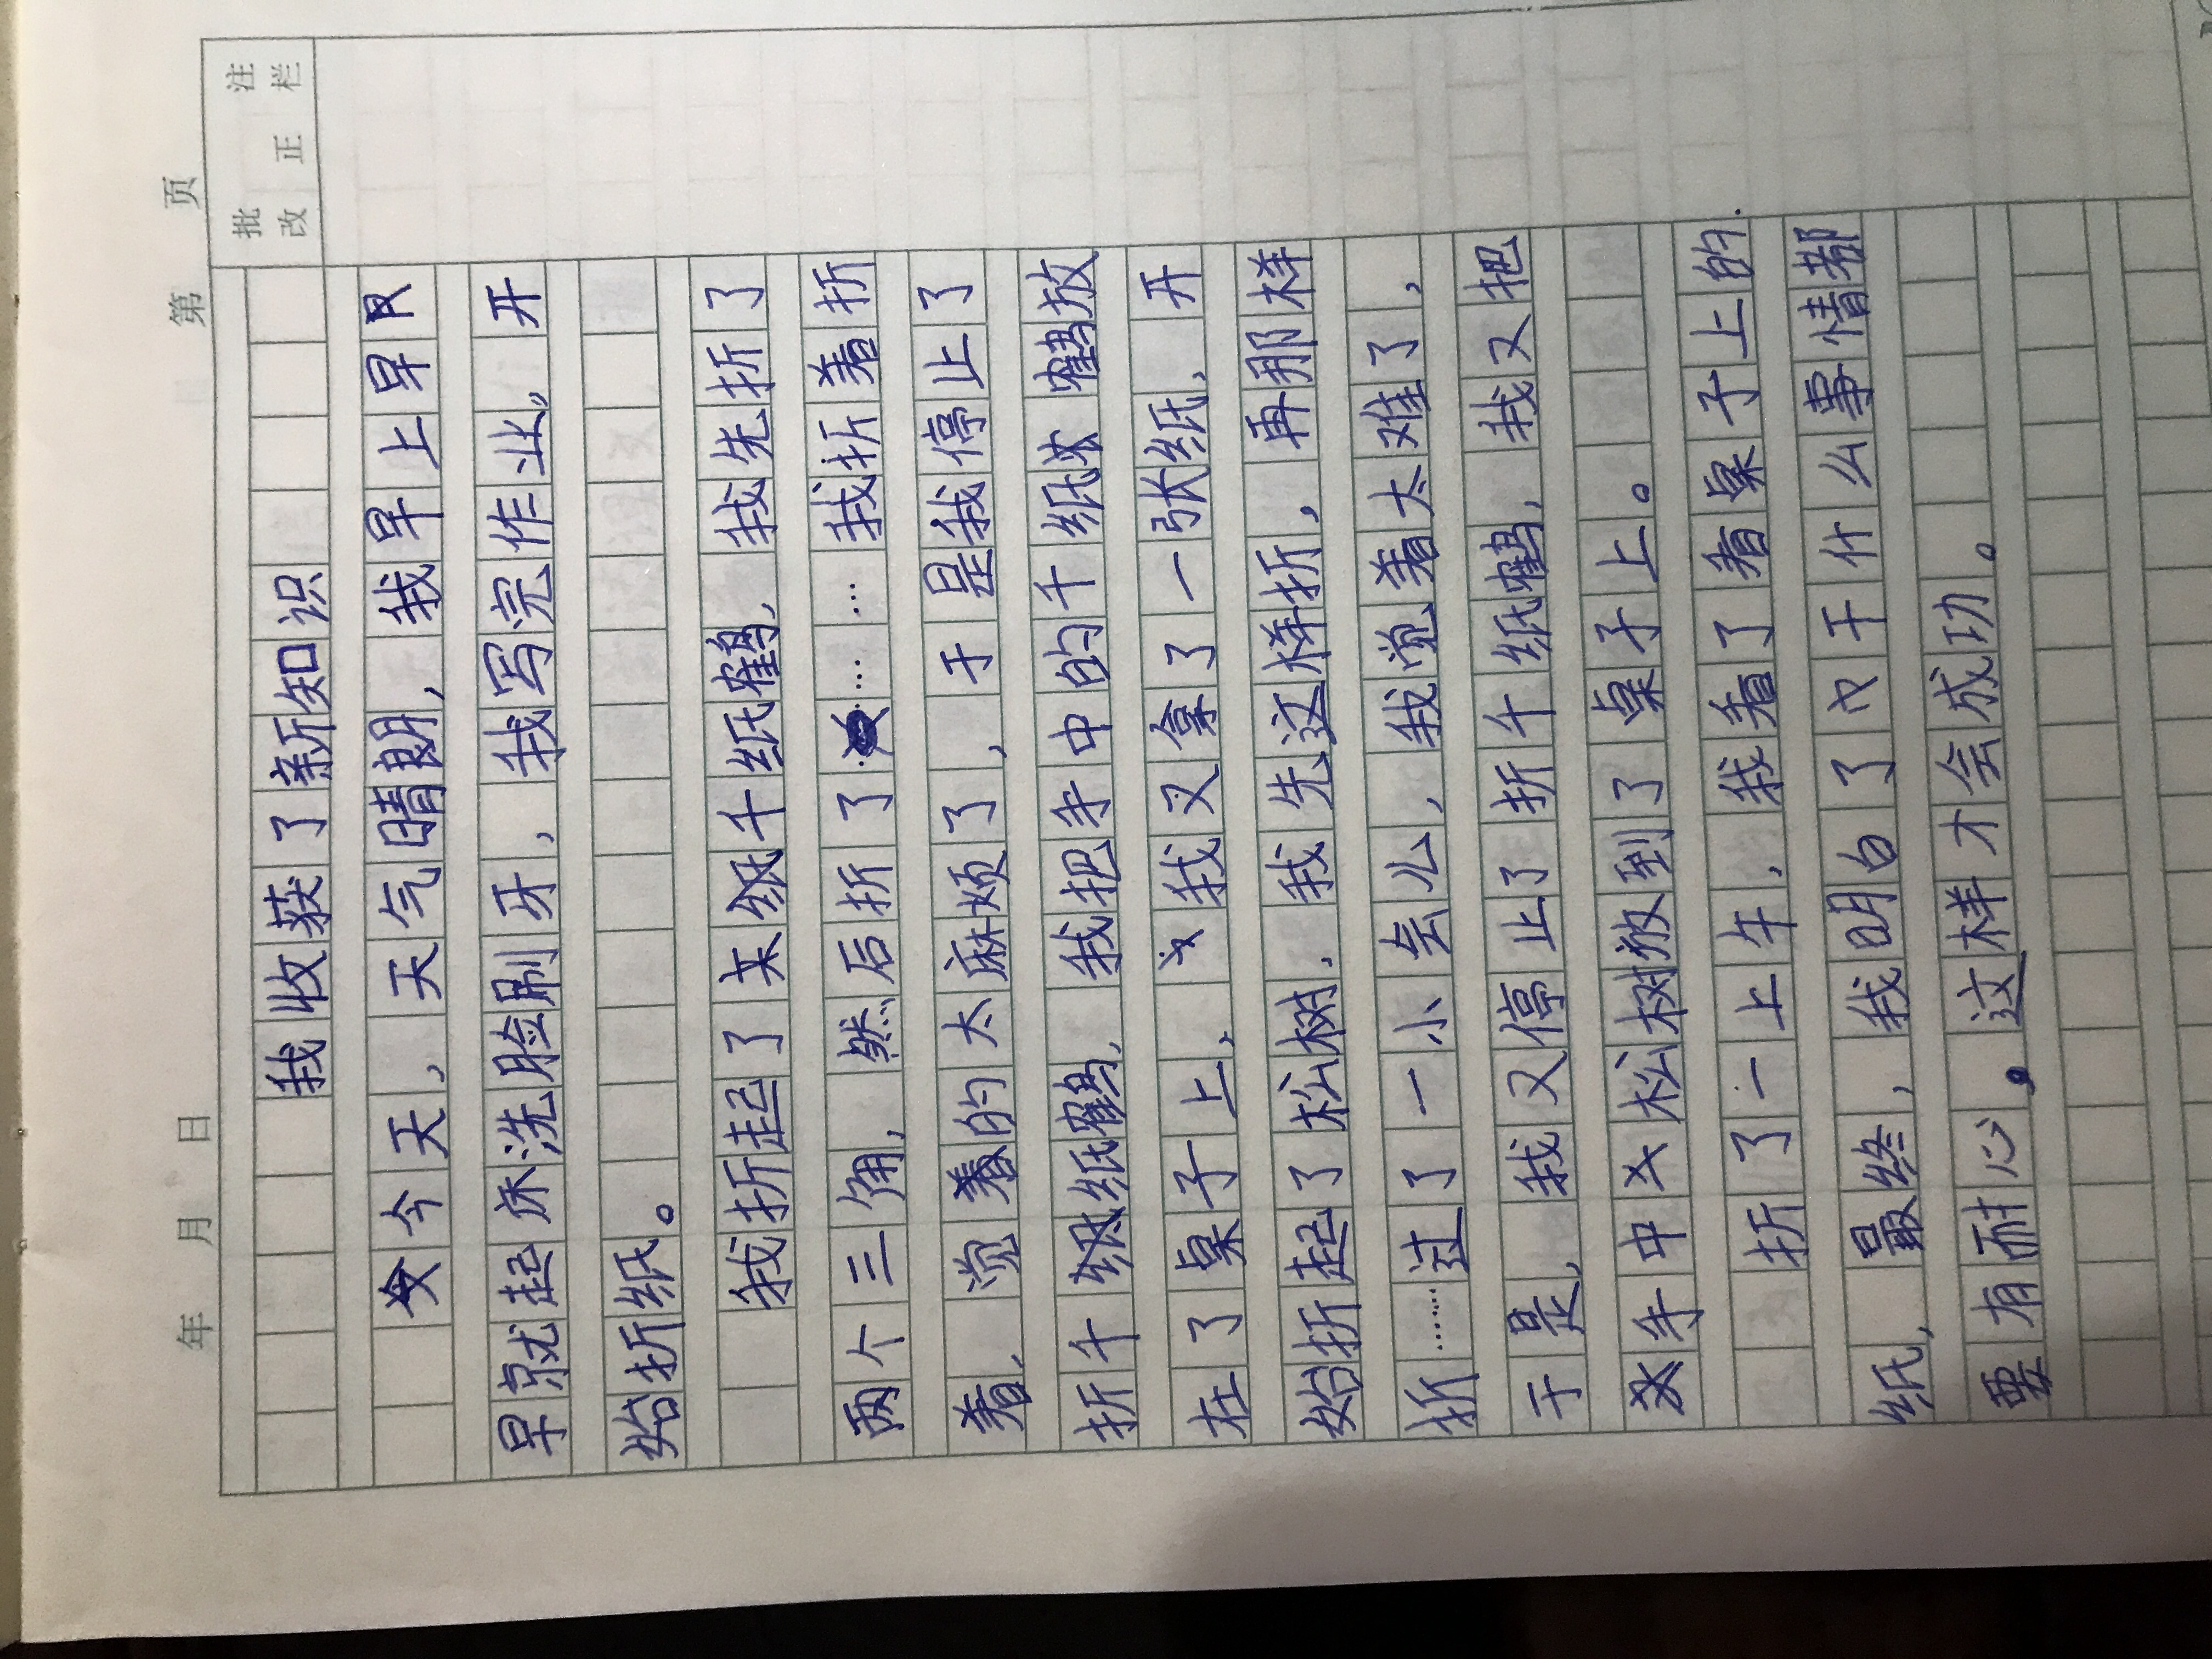 年 月 日 第 页
批 注
改 正 栏
我收获了新知识
今天，天气晴朗，我早上早
早就起床洗脸刷牙，我写完作业。开
始折纸。
我折起了来纸千纸鹤，我先折了
两个三角，然后折了………我折着折
着，觉着的太麻烦了，于是我停止了
折千纸纸鹤，我把手中的千纸鹤放
在了桌子上，我又拿了一张纸，开
始折起了松树，我先这样折，再那样
折……过了一小会儿，我觉着太难了，
于是，我又停止了折千纸鹤，我又把
手中松树放到了桌子上。
折了一上午，我看了看桌子上的
纸，最终，我明白了干什么事情都
要有耐心。这样才会成功。